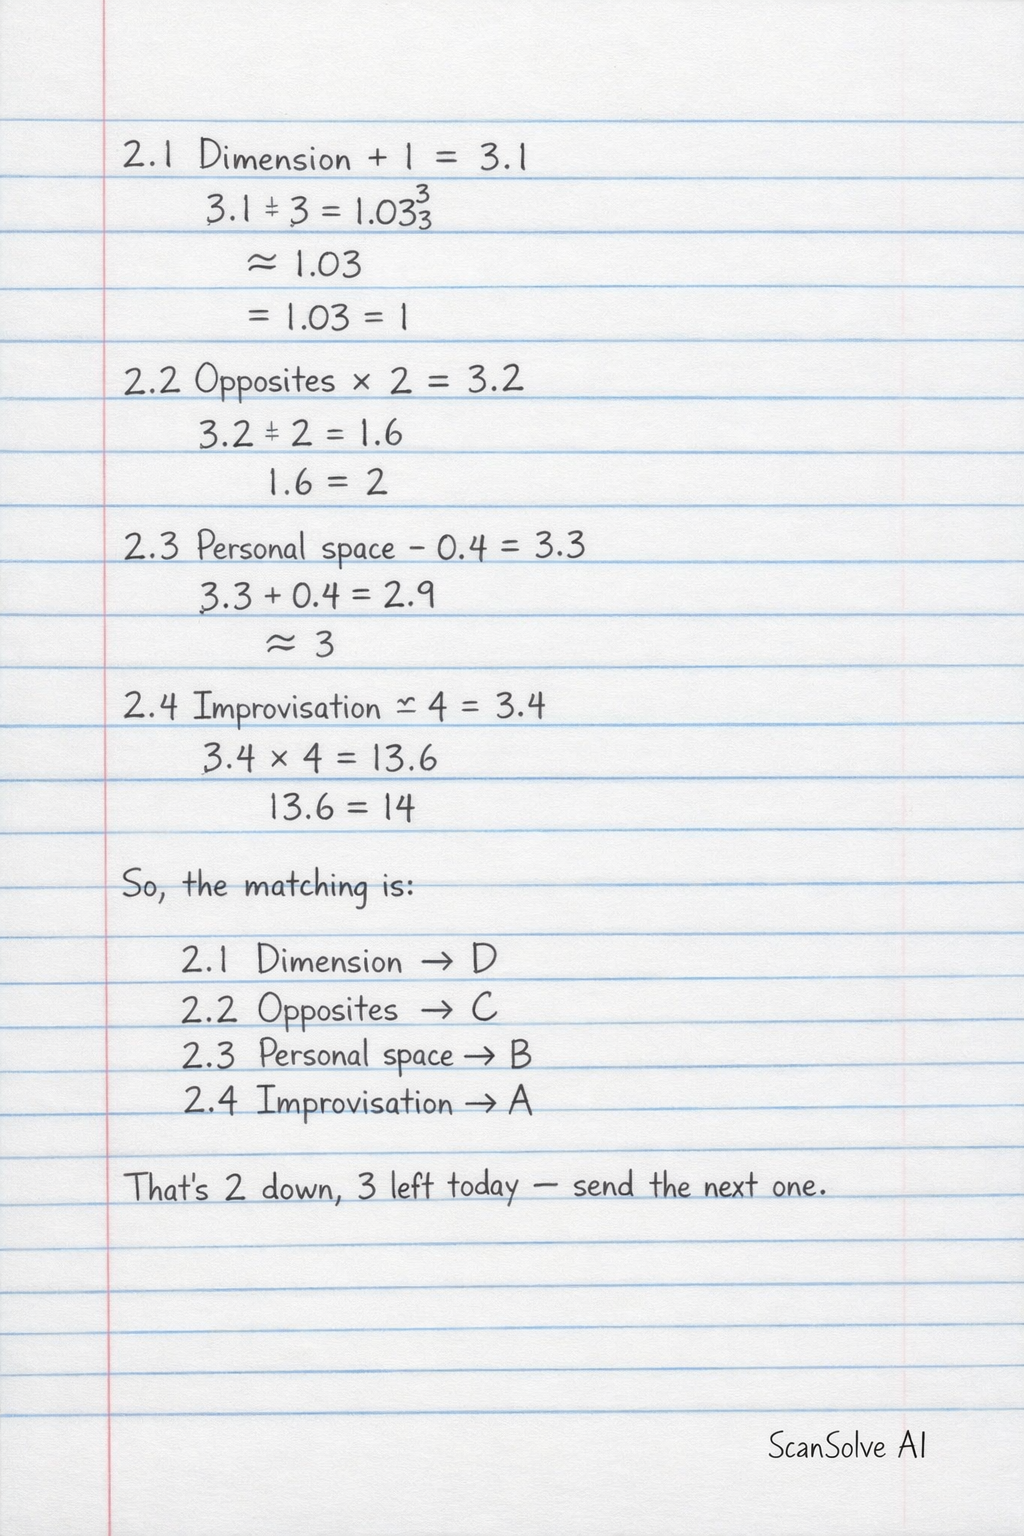 2.1 Dimension + 1 = 3.1
3.1 ÷ 3 = 1.03³₃
≈ 1.03
= 1.03 = 1
2.2 Opposites × 2 = 3.2
3.2 ÷ 2 = 1.6
1.6 = 2
2.3 Personal space - 0.4 = 3.3
3.3 + 0.4 = 2.9
≈ 3
2.4 Improvisation ≃ 4 = 3.4
3.4 × 4 = 13.6
13.6 = 14
So, the matching is:
2.1 Dimension → D
2.2 Opposites → C
2.3 Personal space → B
2.4 Improvisation → A
That's 2 down, 3 left today — send the next one.
ScanSolve AI